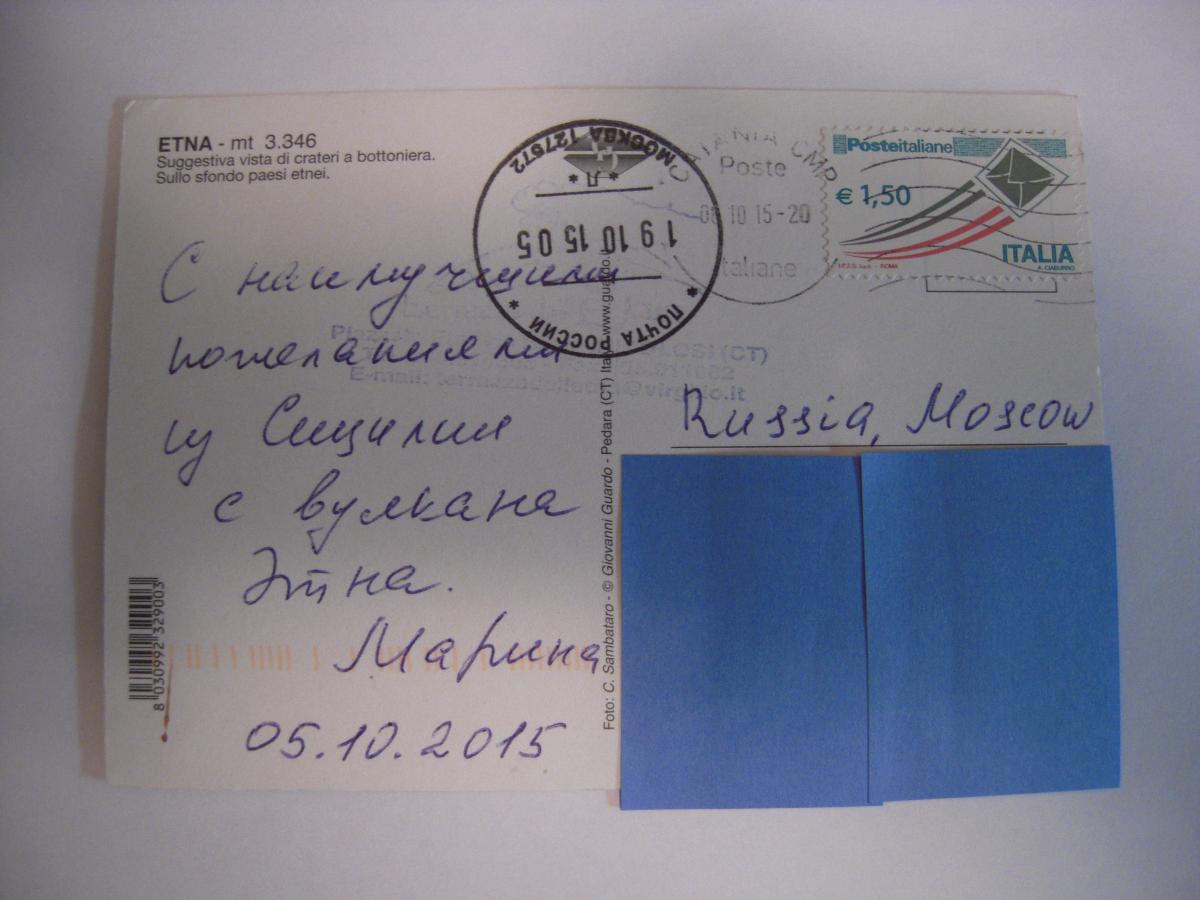 ETNA - mt 3.346
Suggestiva vista di crateri a bottoniera.
Sullo sfondo paesi etnei.
С наилучшими
пожеланиями
из Сицилии
с вулкана
Этна.
Марина
05.10.2015
8 030992 329003
Foto: C. Sambataro - © Giovanni Guardo - Pedara (CT) Italy www.guardo.it
МОСКВА 127572
* Л *
19 10 15 05
* ПОЧТА РОССИИ *
CATANIA CMP
Poste
10 15-20
Italiane
Posteitaliane
€ 1,50
ITALIA
A. CIABURRO
I.P.Z.S. S.p.A. - ROMA
(CT)
E-mail:
Russia, Moscow